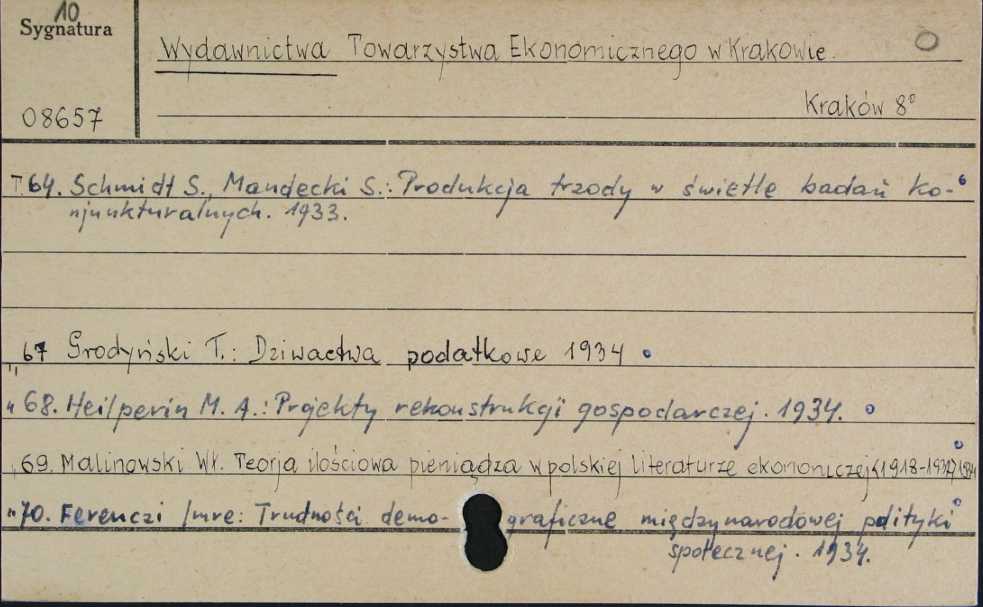 10
Sygnatura
Wydawnictwa Towarzystwa Ekonomicznego w Krakowie.
Kraków 8°
08657
T.64. Schmidt S., Mandecki S.: Produkcja trzody w świetle badań ko-
njunkturalnych. 1933.
„67 Grodyński T.: Dziwactwa podatkowe 1934
„68. Heilperin M. A.: Projekty rekonstrukcji gospodarczej. 1934.
„69. Malinowski Wł. Teorja ilościowa pieniądza w polskiej literaturze ekonomiczej (1918-1932) 1934
„70. Ferenczi Imre: Trudności demo- graficzne międzynarodowej polityki
społecznej. 1934.